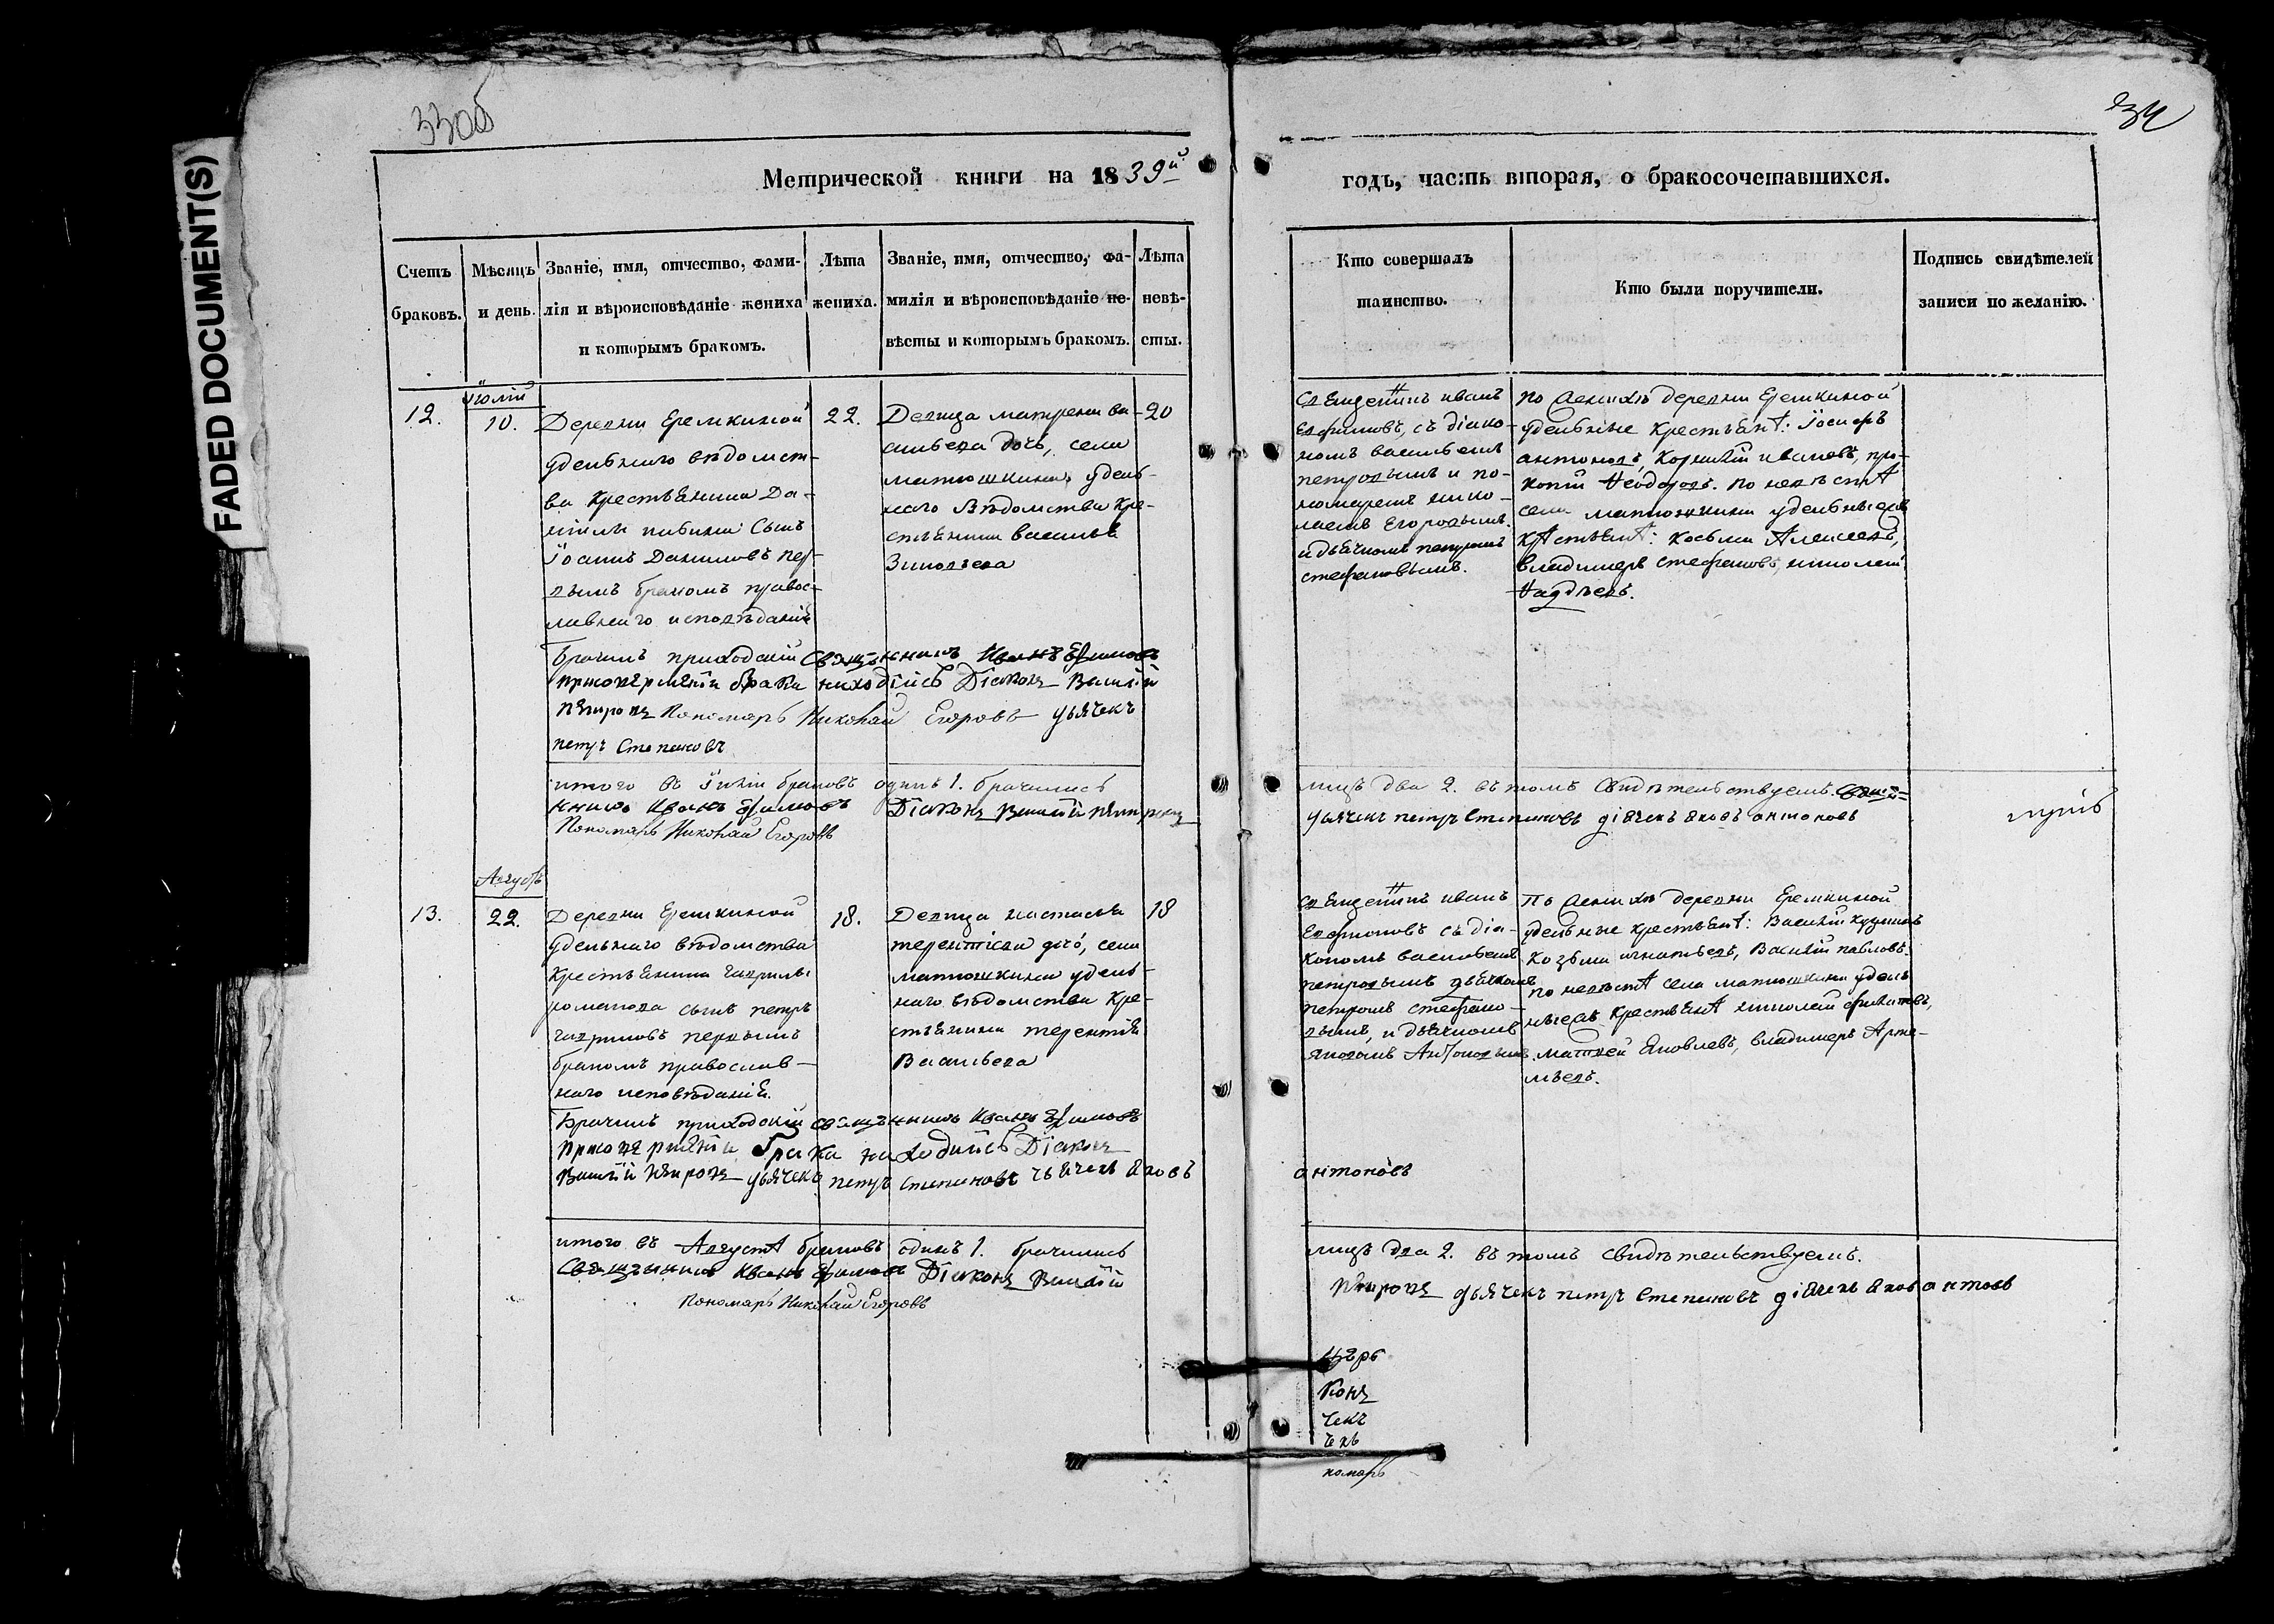 33об
34
FADED DOCUMENT(S)
Метрической книги на 1839й
годъ, часть вторая, о бракосочетавшихся.
Счетъ браковъ.
Мѣсяцъ и день.
Званіе, имя, отчество, фами-
лія и вѣроисповѣданіе жениха
и которымъ бракомъ.
Лѣта
жениха.
Званіе, имя, отчество, фа-
милія и вѣроисповѣданіе не-
вѣсты и которымъ бракомъ.
Лѣта
невѣ-
сты.
Кто совершалъ
таинство.
Кто были поручители.
Подпись свидѣтелей
записи по желанію.
Іюлій
12.
10.
Деревни Еремкиной
удельнаго вѣдомст-
ва крестьянина Да-
ніила сынъ
Іоаннъ Даниловъ пер-
вымъ бракомъ правос-
лавнаго исповѣданія
22.
Девица матрена ва-
сильева дочь, села
матюшкина, удель-
наго вѣдомства кре-
стьянина василья
Зиновьева
20
Священникъ иванъ
Евфимовъ, съ діако-
номъ васильемъ
петровымъ и по-
номаремъ нико-
лаемъ Егоровымъ.
и дьячкомъ петромъ
стефановымъ.
по женихѣ деревни Еремкиной
удельные крестьяне: Іосифъ
антоновъ, Корнилій ивановъ, про-
копій Ѳеодоровъ. по невѣстѣ
села матюшкина удельныежъ
крестьяне: косьма Алексеевъ,
владимеръ стефановъ, николай
Ѳаддѣевъ.
Брачилъ приходскій Священникъ Иванъ Ефимовъ
при находились Діаконъ Василій
Петровъ Пономарь Николай Егоровъ дьячекъ
петръ Степановъ
итого въ Іюліи браковъ одинъ 1. брачились
лицъ два 2. въ томъ свидѣтельствуемъ. Свящ=
нникъ Иванъ Ефимовъ Діаконъ Василій Петровъ
дьячекъ петръ Степановъ діячекъ яковъ антоновъ
Пономарь Николай Егоровъ
Августъ
13.
22.
Деревни Еремкиной
удельнаго вѣдомства
крестьянина гаврилы
романова сынъ петръ
гавриловъ первымъ
бракомъ православ-
наго исповѣданія.
18.
Девица настасья
терентіева дочь, села
матюшкина удель-
наго вѣдомства кре-
стьянина терентія
Васильева
18
Священникъ иванъ
Евфимовъ съ діа-
кономъ васильемъ
петровымъ дьячкомъ
петромъ стефано-
вымъ, и дьячкомъ
яковомъ Антоновымъ.
По женихѣ деревни Еремкиной
удельные крестьяне: Василій кузминъ
Козьма игнатьевъ, Василій павловъ.
по невѣстѣ села матюшкина удель-
ныежъ крестьяне николай филиповъ,
матвей Яковлевъ, владимеръ Арте-
мьевъ.
Брачилъ приходскій священникъ Иванъ Ефимовъ
при брака находились Діаконъ
Василій Петровъ дьячекъ петръ степановъ дьячекъ яковъ
антоновъ
итого въ Августѣ браковъ одинъ 1. брачились
лицъ два 2. въ томъ свидѣтельствуемъ.
Священникъ Иванъ Ефимовъ Діаконъ Василій
Петровъ дьячекъ петръ Степановъ діячекъ яковъ антоовъ
Пономарь Николай Егоровъ
конъ
чекъ
чекъ
номарь